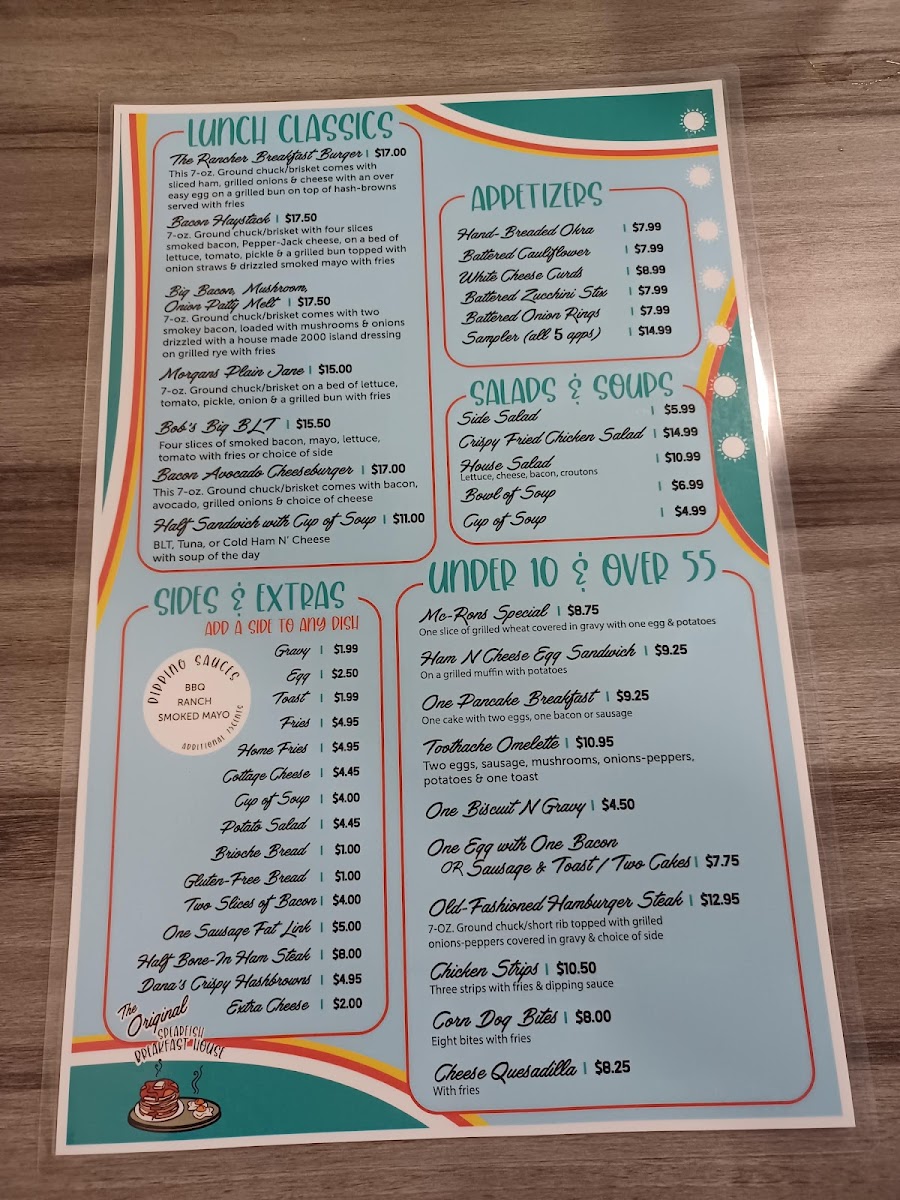 LUNCH CLASSICS
The Rancher Breakfast Burger | $17.00
This 7-oz. Ground chuck/brisket comes with
sliced ham, grilled onions & cheese with an over
easy egg on a grilled bun on top of hash-browns
served with fries
Bacon Haystack | $17.50
7-oz. Ground chuck/brisket with four slices
smoked bacon, Pepper-Jack cheese, on a bed of
lettuce, tomato, pickle & a grilled bun topped with
onion straws & drizzled smoked mayo with fries
Big Bacon, Mushroom,
Onion Patty Melt | $17.50
7-oz. Ground chuck/brisket comes with two
smokey bacon, loaded with mushrooms & onions
drizzled with a house made 2000 island dressing
on grilled rye with fries
Morgans Plain Jane | $15.00
7-oz. Ground chuck/brisket on a bed of lettuce,
tomato, pickle, onion & a grilled bun with fries
Bob's Big BLT | $15.50
Four slices of smoked bacon, mayo, lettuce,
tomato with fries or choice of side
Bacon Avocado Cheeseburger | $17.00
This 7-oz. Ground chuck/brisket comes with bacon,
avocado, grilled onions & choice of cheese
Half Sandwich with Cup of Soup | $11.00
BLT, Tuna, or Cold Ham N' Cheese
with soup of the day
APPETIZERS
Hand-Breaded Okra | $7.99
Battered Cauliflower | $7.99
White Cheese Curds | $8.99
Battered Zucchini Stix | $7.99
Battered Onion Rings | $7.99
Sampler (all 5 apps) | $14.99
SALADS & SOUPS
Side Salad | $5.99
Crispy Fried Chicken Salad | $14.99
House Salad | $10.99
Lettuce, cheese, bacon, croutons
Bowl of Soup | $6.99
Cup of Soup | $4.99
SIDES & EXTRAS
ADD A SIDE TO ANY DISH
DIPPING SAUCES
BBQ
RANCH
SMOKED MAYO
Gravy | $1.99
Egg | $2.50
Toast | $1.99
Fries | $4.95
Home Fries | $4.95
Cottage Cheese | $4.45
Cup of Soup | $4.00
Potato Salad | $4.45
Brioche Bread | $1.00
Gluten-Free Bread | $1.00
Two Slices of Bacon | $4.00
One Sausage Fat Link | $5.00
Half Bone-In Ham Steak | $8.00
Dana's Crispy Hashbrowns | $4.95
Extra Cheese | $2.00
The
Original
SPEARFISH
BREAKFAST HOUSE
UNDER 10 & OVER 55
Mc-Rons Special | $8.75
One slice of grilled wheat covered in gravy with one egg & potatoes
Ham N Cheese Egg Sandwich | $9.25
On a grilled muffin with potatoes
One Pancake Breakfast | $9.25
One cake with two eggs, one bacon or sausage
Toothache Omelette | $10.95
Two eggs, sausage, mushrooms, onions-peppers,
potatoes & one toast
One Biscuit N Gravy | $4.50
One Egg with One Bacon
OR Sausage & Toast / Two Cakes | $7.75
Old-Fashioned Hamburger Steak | $12.95
7-OZ. Ground chuck/short rib topped with grilled
onions-peppers covered in gravy & choice of side
Chicken Strips | $10.50
Three strips with fries & dipping sauce
Corn Dog Bites | $8.00
Eight bites with fries
Cheese Quesadilla | $8.25
With fries